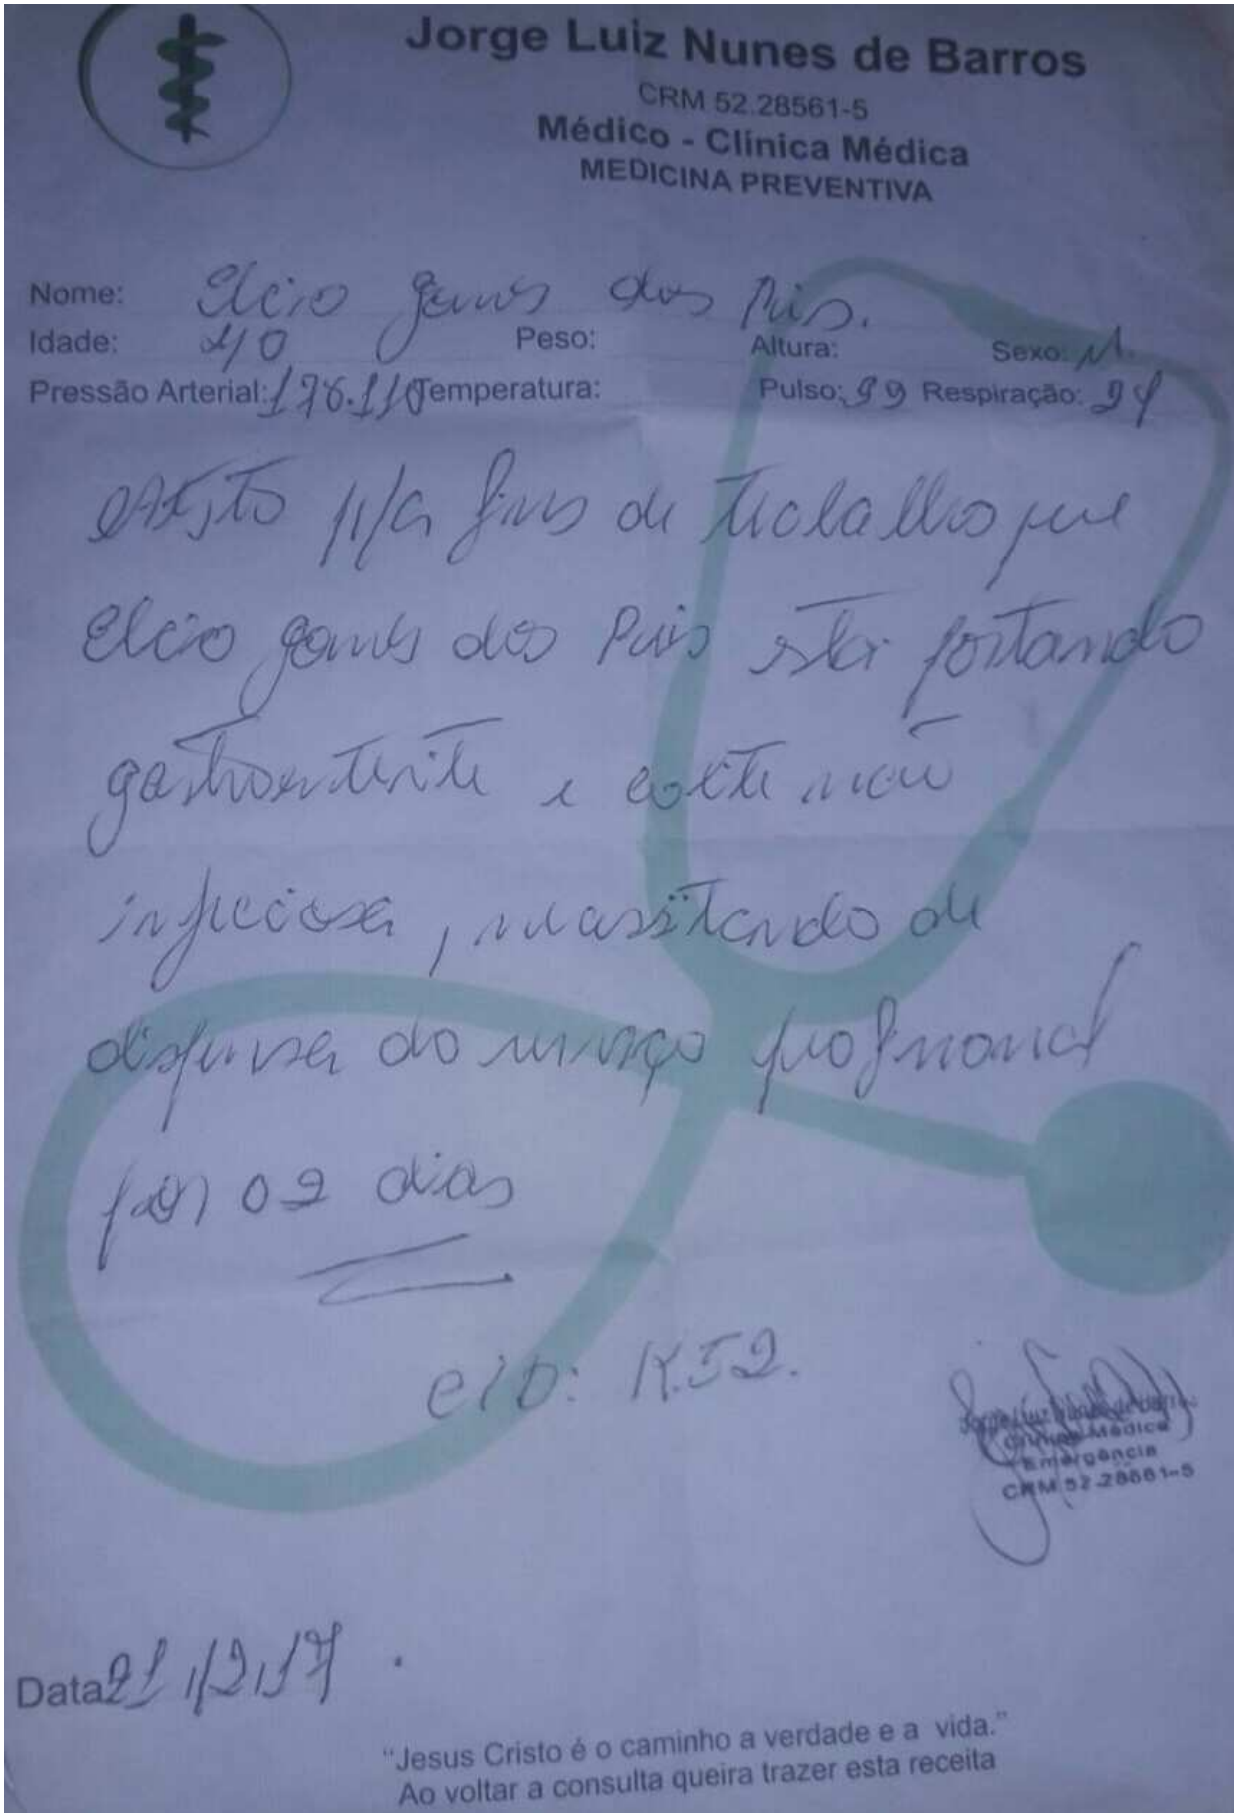 Jorge Luiz Nunes de Barros
CRM 52.28561-5
Médico - Clínica Médica
MEDICINA PREVENTIVA
Nome: Elcio gomes dos Reis.
Idade: 40 Peso: Altura: Sexo: M.
Pressão Arterial: 176.110 Temperatura: Pulso: 99 Respiração: 24
Atesto p/a fins de trabalho que
Elcio gomes dos Reis está portando
gastroenterite e colite não
infeciosa, necessitando de
dispensa do serviço profissional
por 02 dias
CID: K52.
Clínica Médica
Emergência
CRM 52-28561-5
Data 21/12/17.
"Jesus Cristo é o caminho a verdade e a vida."
Ao voltar a consulta queira trazer esta receita